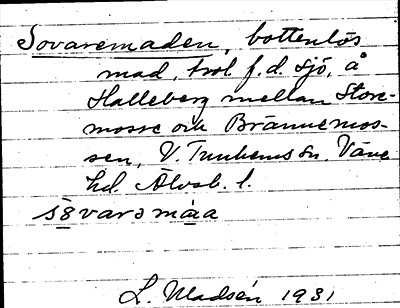 Sovaremaden, bottenlös
mad, trol. f. d. sjö, å
Halleberg mellan Store-
mosse och Brännemos-
sen, V. Tunhems sn. Väne
hd. Älvsb. l.
s8varəmáa
L. Madsén 1931